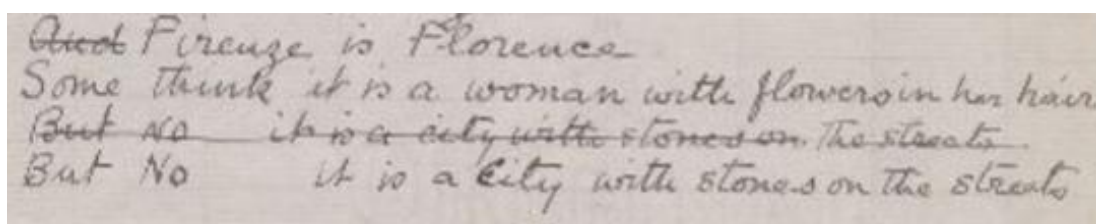 And Firenze is Florence
Some think it is a woman with flowers in her hair
But No it is a city with stones on the streets
But No it is a City with stones on the streets